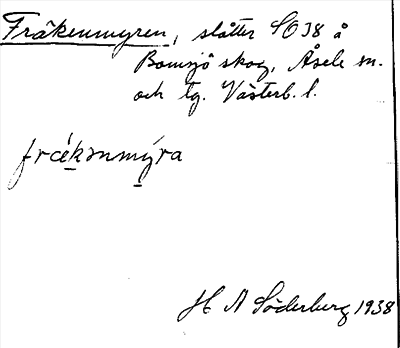 Fräkenmyren, slåtter SO 38 å
Bomsjö skog, Åsele sn.
och tg. Västerb. l.
frǽkənmýra
H A Söderberg 1938